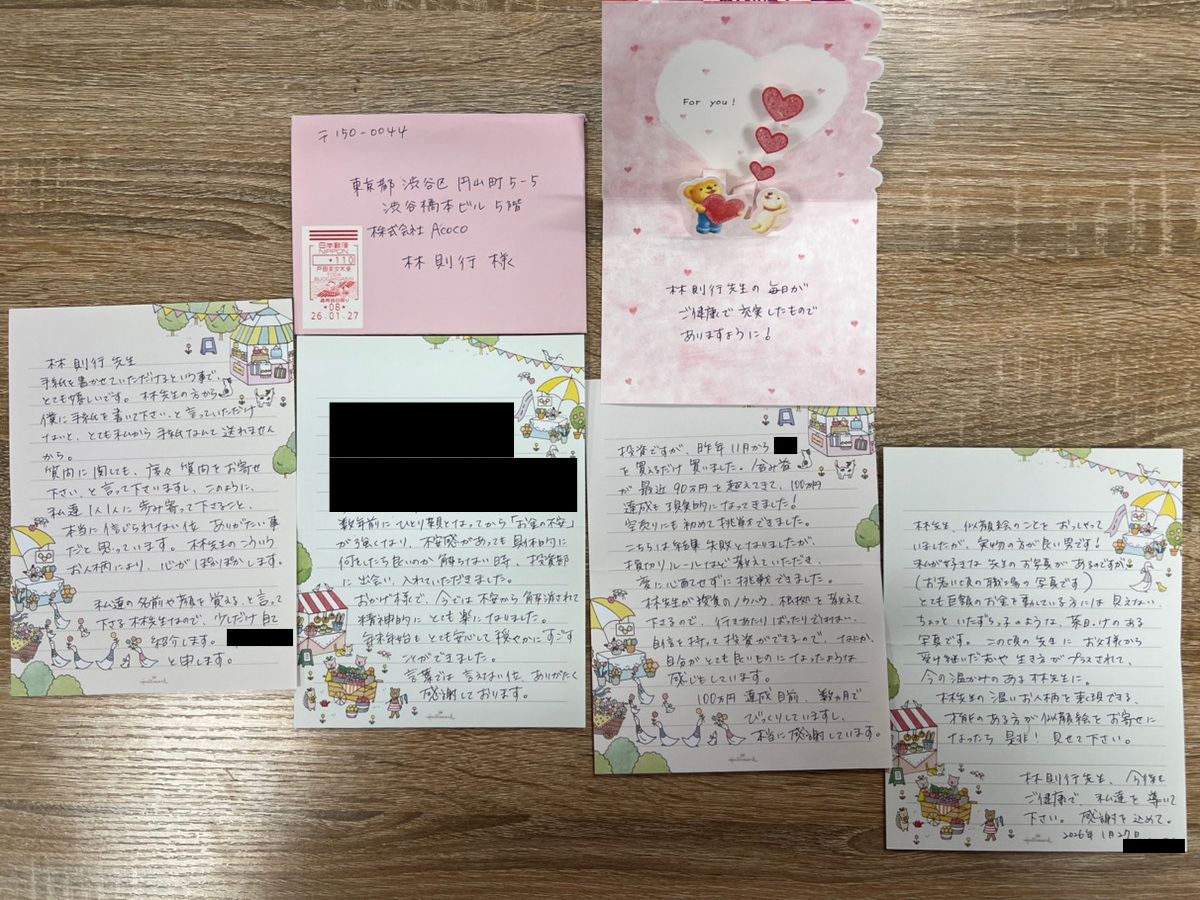 〒150-0044
東京都 渋谷区 円山町5-5
渋谷橋本ビル 5階
株式会社 Acoco
林 則行 様
日本郵便
NIPPON
*110
*08*
26.01.27
For you!
林 則行先生の 毎日が
ご健康で 充実したもので
ありますように!
林 則行 先生
手紙を書かせていただけるという事で、
とても嬉しいです。林先生の方から
僕に手紙を書いて下さい、と言っていただけ
ないと、とても私から手紙なんて送れません
から。
質問に関しても、度々質問をお寄せ
下さい、と言って下さいますし、このように、
私達1人1人に歩み寄って下さること、
本当に信じられない位 ありがたい事
だと思っています。林先生のこういう
お人柄により、心がぽかぽかします。
私達の名前や顔を覚える、と言って
下さる林先生なので、少しだけ自己
紹介します。
と申します。
数年前にひとり親となってから「お金の不安」
が強くなり、不安感があっても具体的に
何をしたら良いか解らない時、投資部
に出会い、入れていただきました。
おかげ様で、今では不安から解消されて
精神的にとても楽になりました。
年末年始もとても安心して穏やかにすごす
ことができました。
言葉では言えない位、ありがたく
感謝しております。
Hallmark
投資ですが、昨年11月から
を買えるだけ買いました。含み益
が最近90万円を超えてきて、100万円
達成も現実的になってきました!
空売りにも初めて挑戦できました。
こちらは結果失敗となりましたが、
損切りルールなど教えていただき、
変に心配せずに挑戦できました。
林先生が投資のノウハウ、根拠を教えて
下さるので、行きあたりばったりではない、
自信を持って投資ができるので、なにか、
自分がとても良いものになったような
感じもしています。
100万円達成目前、数ヵ月で
びっくりしていますし、
本当に感謝しています。
Hallmark
林先生、似顔絵のことをおっしゃって
いましたが、実物の方が良い男です!
私が好きな先生のお写真があるのですが
(お若い頃の職場の写真です)
とても巨額のお金を動かしている方には見えない、
ちょっといたずらっ子のような、茶目っけのある
写真です。この頃の先生にお父様から
受け継いだ志や生き方がプラスされて、
今の温かけのある林先生に。
林先生の温いお人柄を表現できる、
才能のある方が似顔絵をお寄せに
なったら是非!見せて下さい。
林 則行先生、今年も
ご健康で、私達を導いて
下さい。感謝を込めて。
2026年1月27日
Hallmark